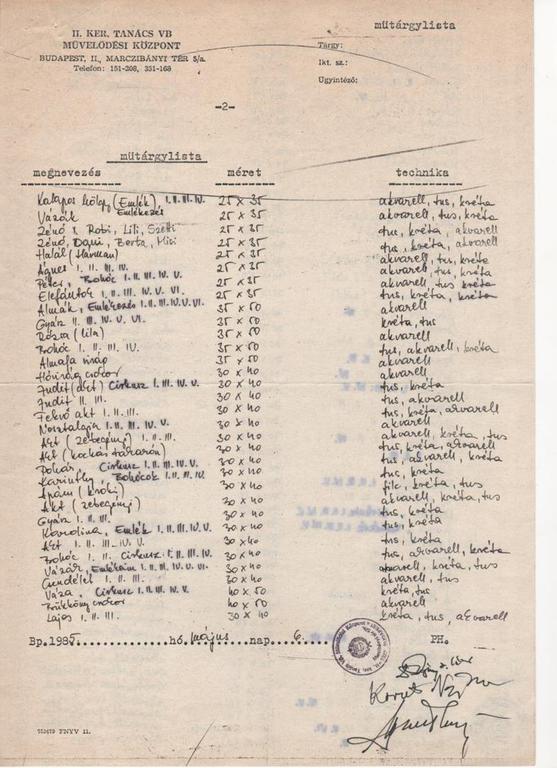 műtárgylista
II. KER. TANÁCS VB
MŰVELŐDÉSI KÖZPONT
BUDAPEST, II., MARCZIBÁNYI TÉR 5/a.
Telefon: 151-208, 351-168
Tárgy:
Ikt. sz.:
Ügyintéző:
-2-
műtárgylista
megnevezés méret technika
Kalapos hölgy (Emlék) I. II. III. IV. 25 x 35 akvarell, tus, kréta
Vázák Emlékezés 25 x 35 akvarell, tus, kréta
Zénó, Robi, Lili, Szetti 25 x 35 tus, kréta, akvarell
Zénó, Dani, Berta, Misi 25 x 35 tus, kréta, akvarell
Halál (Hárman) 25 x 35 akvarell, tus, kréta
Ágnes I. II. III. IV. 25 x 35 akvarell, tus, kréta
Péter, Bohóc I. II. III. IV. V. 25 x 35 akvarell, tus, kréta
Elefántok I. II. III. IV. V. VI. 25 x 35 tus, kréta, kréta
Almák, Emlékezés I. II. III. IV. V. VI. 35 x 50 akvarell
Gyász II. III. IV. V. VI. 35 x 50 kréta, tus
Rózsa (lila) 35 x 50 akvarell
Bohóc I. II. III. IV. 35 x 50 tus, akvarell, kréta
Almafa virág 35 x 50 akvarell
Hóvirág csokor 30 x 40 akvarell
Judit (akt) Cirkusz I. III. IV. V. 30 x 40 tus, kréta
Judit II. III. 30 x 40 tus, akvarell
Fekvő akt I. II. III. 30 x 40 tus, kréta, akvarell
Nosztalgia I. II. III. IV. V. 30 x 40 akvarell
Akt (zebegényi) I. II. III. 30 x 40 akvarell, kréta, tus
Akt (kockás takarón) 30 x 40 tus, kréta, akvarell
Pohár, Cirkusz I. II. III. IV. V. 30 x 40 tus, akvarell, kréta
Karinthy, Bohócok I. II. III. 30 x 40 tus, kréta
Apám (kroki) 30 x 40 filc, kréta, tus
Akt (zebegényi) 30 x 40 akvarell, kréta, tus
Gyász I. II. III. 30 x 40 tus, kréta
Karolina, Emlék I. II. III. IV. V. 30 x 40 tus, kréta
Akt I. II. III. IV. V. 30 x 40 tus, kréta
Bohóc I. II. Cirkusz I. II. III. IV. 30 x 40 tus, akvarell, kréta
Vázák, Emlékeim I. II. III. IV. V. VI. 30 x 40 akvarell, kréta, tus
Cundélet I. II. III. 30 x 40 akvarell, tus
Váza, Cirkusz I. II. III. IV. V. 40 x 50 tus, kréta
csokor 40 x 50 akvarell
Lajos I. II. III. 30 x 40 kréta, tus, akvarell
Bp. 1985. hó. május nap. 6. PH.
FNYV 11.